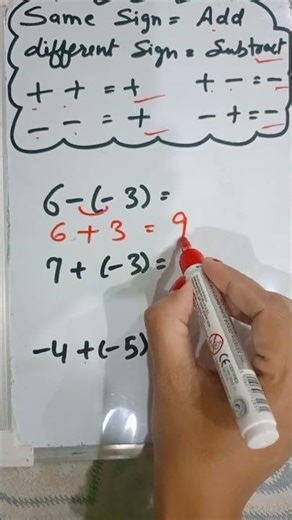 Same Sign = Add
different Sign = Subtract
+ + = +   + - = -
- - = +   - + = -
6 - (- 3) =
6 + 3 = 9
7 + (- 3) =
-4 + (- 5)